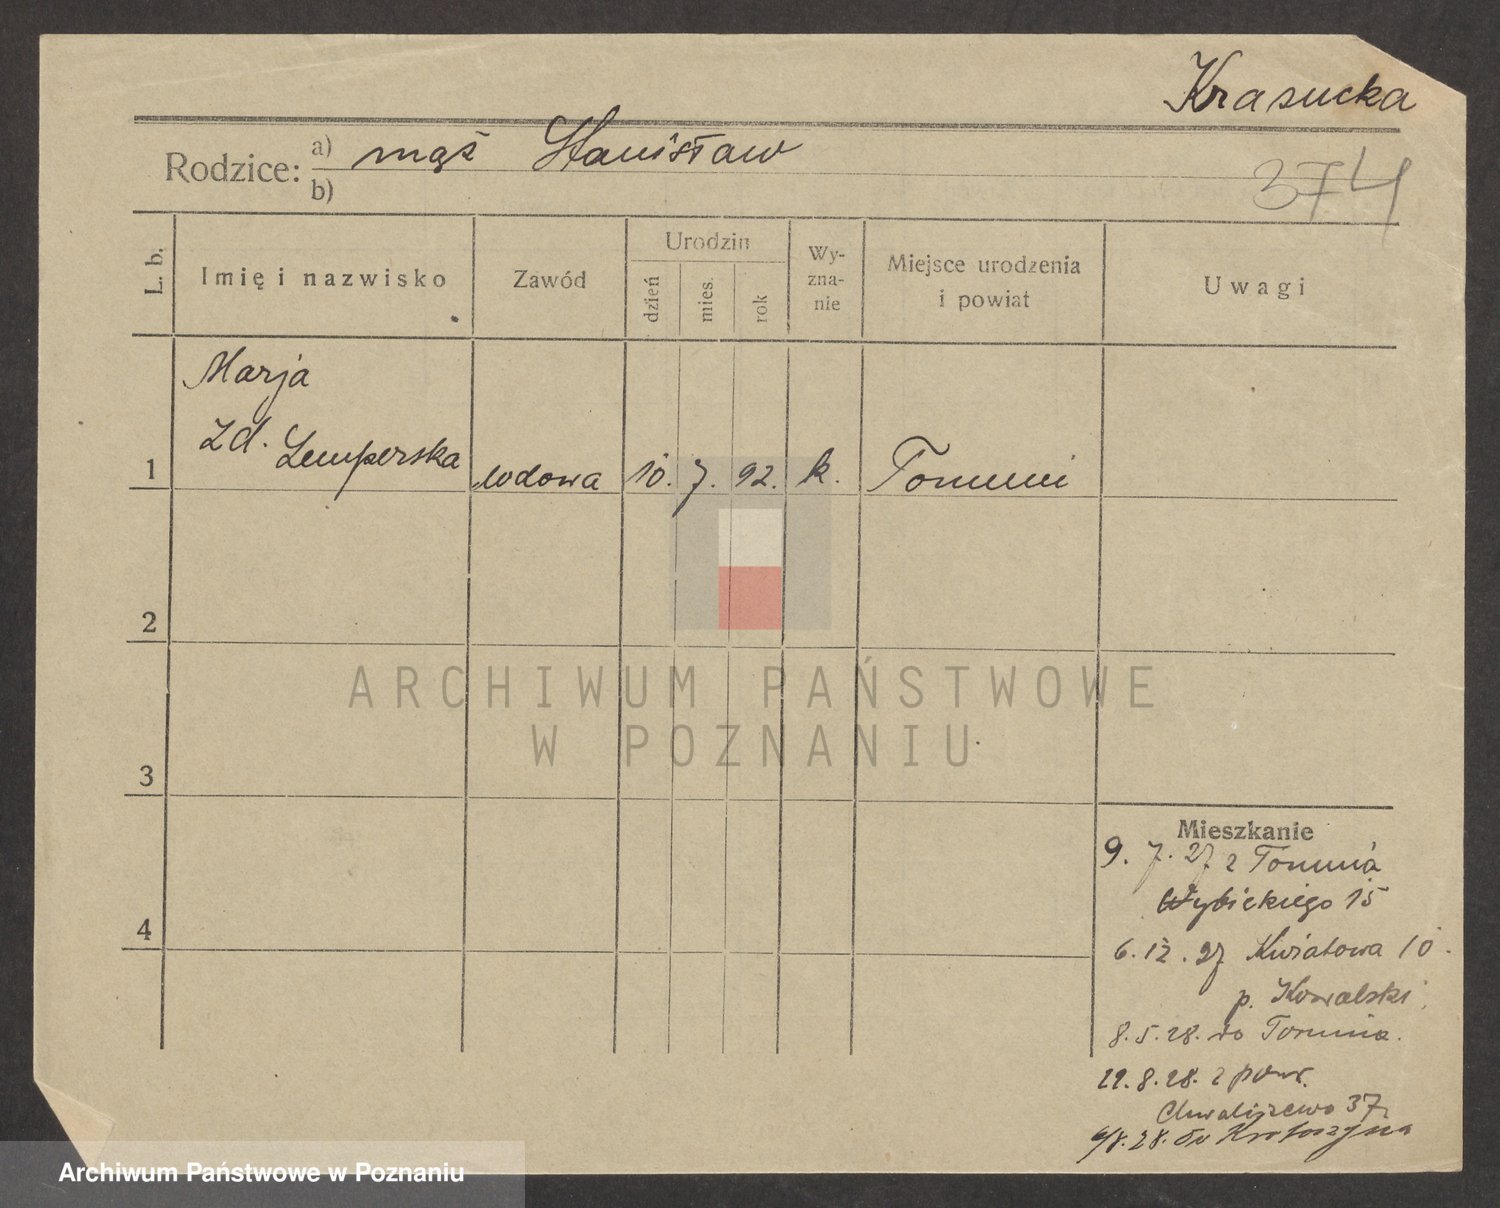 Krasucka
Rodzice: a) mąż Stanisław
b)
374
L. b. Imię i nazwisko Zawód Urodzin dzień mies. rok Wy-zna-nie Miejsce urodzenia i powiat Uwagi
Marja
zd. Lemperska
1 wdowa 10. 7. 92. k. Toruniu
2
3
4
Mieszkanie
9. 7. 27 z Torunia
Wybickiego 15
6. 12. 27 Kwiatowa 10
p. Kowalski
8. 5. 28. do Torunia.
8. 28. z powr.
Chwaliszewo 37
8. 28. do Krotoszyna
ARCHIWUM PAŃSTWOWE
W POZNANIU
Archiwum Państwowe w Poznaniu